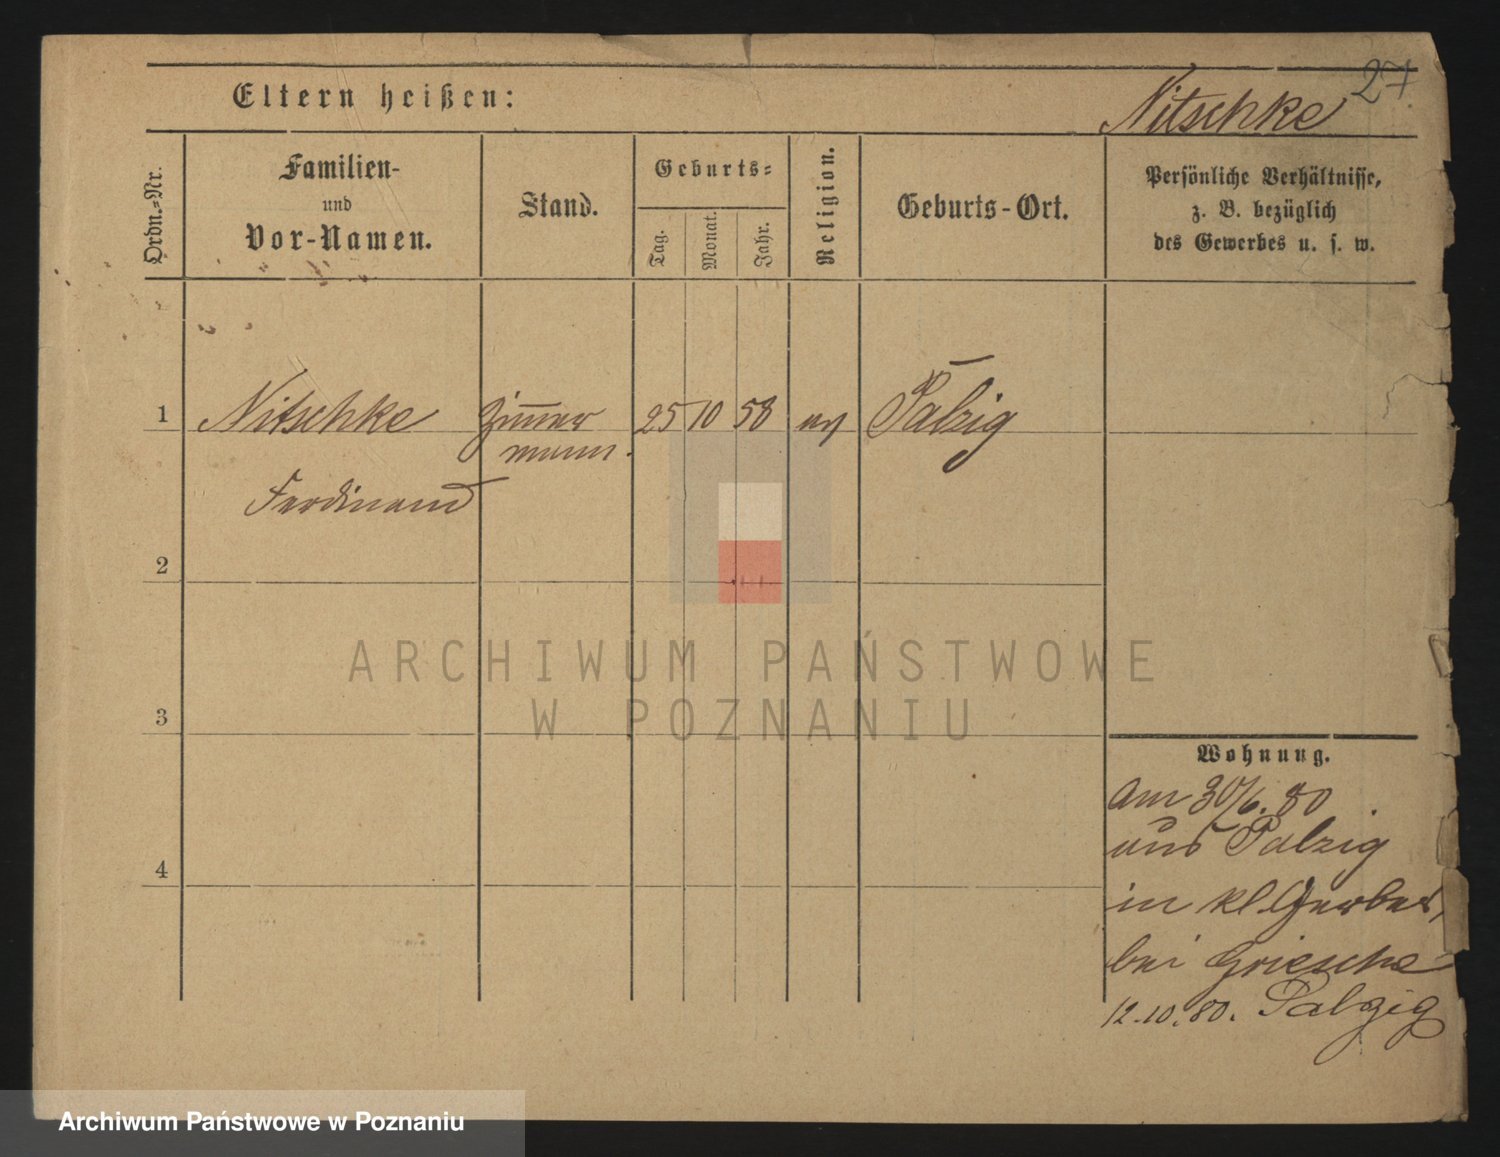 27
Eltern heißen:
Nitschke
Ordn.-Nr.
Familien-
und
Vor-Namen.
Stand.
Geburts-
Tag.
Monat.
Jahr.
Religion.
Geburts-Ort.
Persönliche Verhältnisse,
z. B. bezüglich
des Gewerbes u. s. w.
1
Nitschke
Zimmer
mann.
25 10 58 ev Palzig
Ferdinand
2
ARCHIWUM PAŃSTWOWE
W POZNANIU
3
Wohnung.
am 30/6. 80
aus Palzig
in kl. Gerber,
bei Griesche
4
12.10.80. Palzig
Archiwum Państwowe w Poznaniu